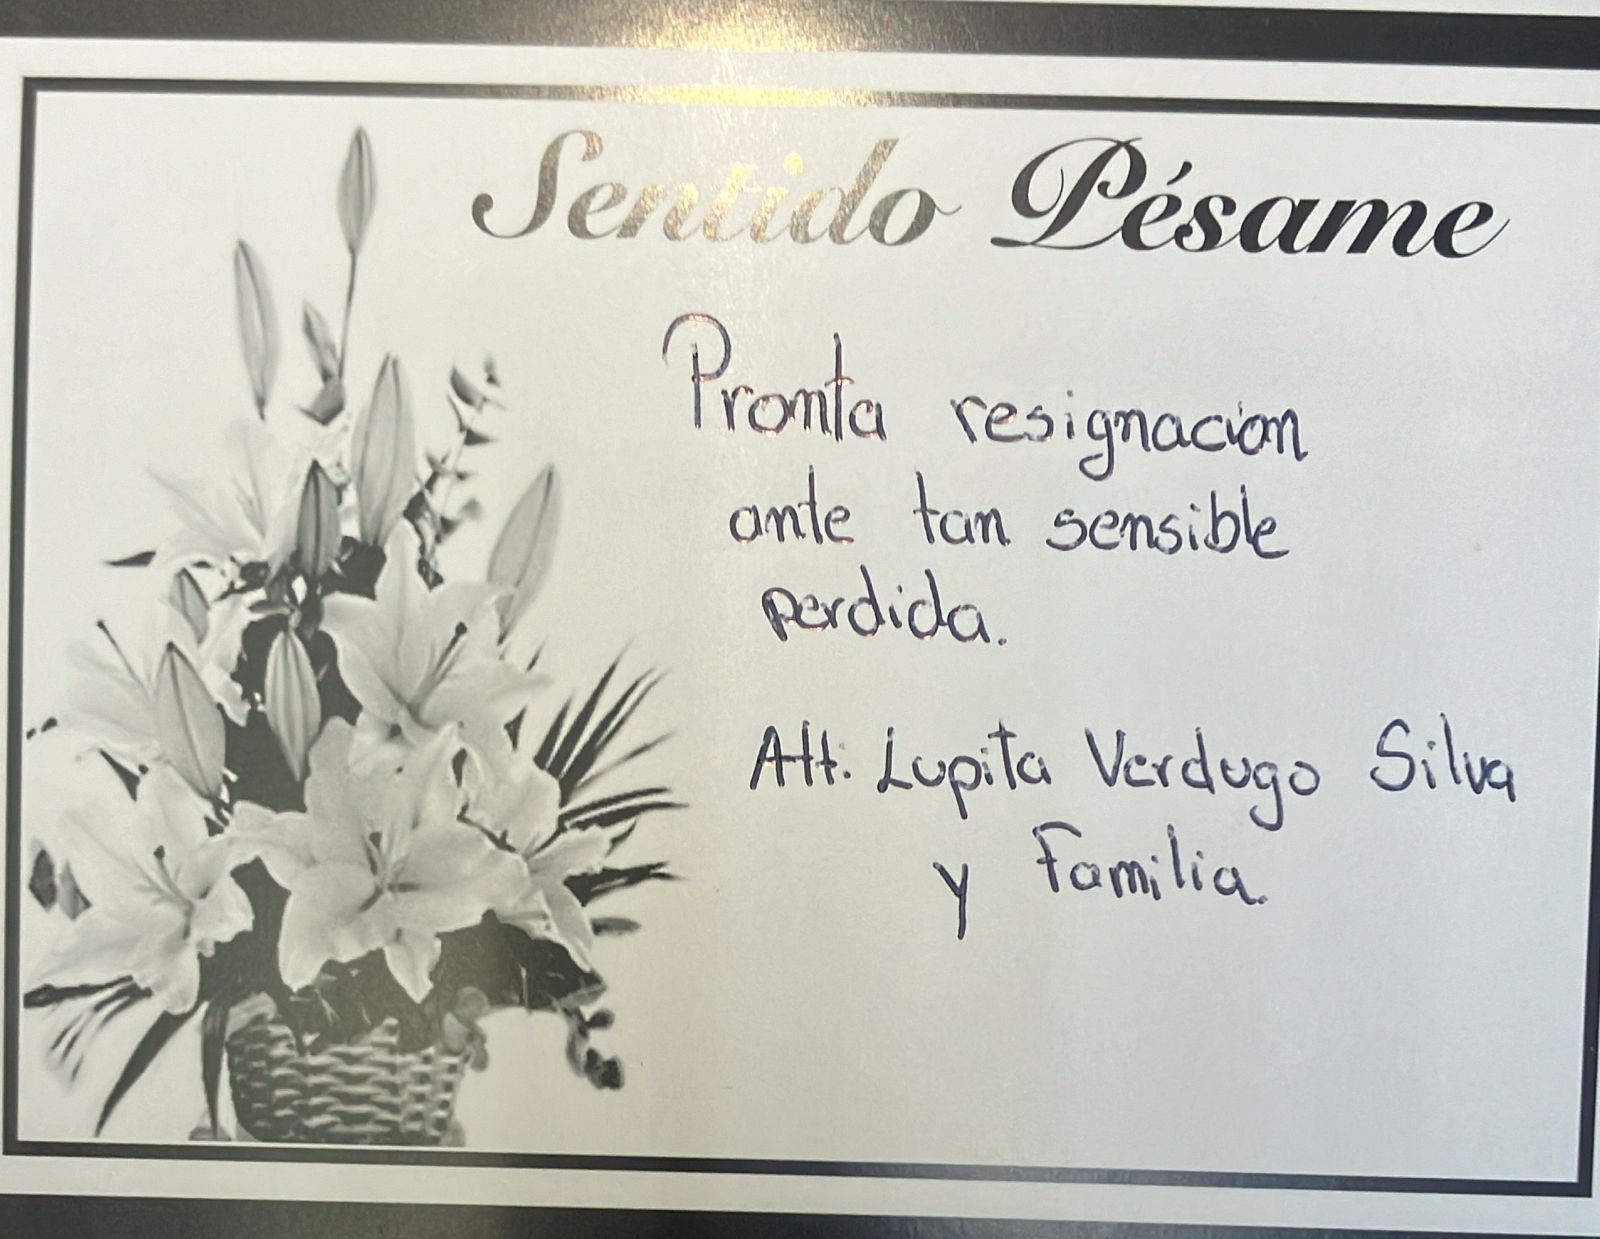 Sentido Pésame
Pronta resignacion
ante tan sensible
perdida.
Att: Lupita Verdugo Silva
y Familia.